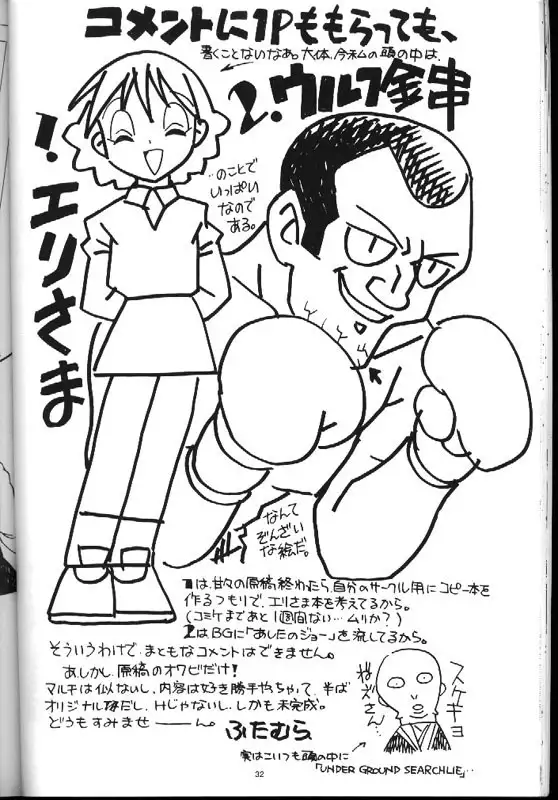 コメントに1Pももらっても、
書くことないなあ。大体、今私の頭の中は、
1. エリさま
2. ウルフ金串
…のことで
いっぱい
なので
ある。
なんて
ぞんざい
な絵だ。
1は、甘々の原稿終わったら、自分のサークル用にコピー本を
作るつもりで、エリさま本を考えてるから。
(コミケまであと1週間ない…ムリか?)
2はBGに「あしたのジョー」を流してるから。
そういうわけで、まともなコメントはできません。
あ、しかし、原稿のオワビだけ!
マルチは似ないし、内容は好き勝手やっちゃって、半ば
オリジナルだし、Hじゃないし、しかも未完成。
どうもすみませーーん。
ふたむら
スケキヨ
ねえさん…
実はこいつも頭の中に
「UNDER GROUND SEARCHLIE」…
32